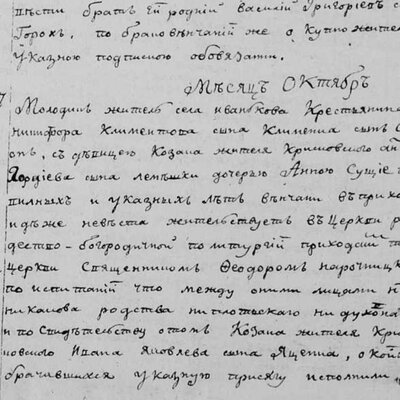 пѣсти братъ Ей родній василій Григоріевъ с
Горохъ, по браковѣнчаній же о купножител
указною подпискою обовязаны.
Мѣсяцъ Октябръ
Молодикъ житель села иванкова Крестьянинъ
никифора Климентова сына Клименка сынъ
онъ, съ дѣвицею Козака жителя Крисовского
Гордіева сына лемѣшки дочерью Анною Сущіе
вилныхъ и указныхъ лѣтъ вѣнчани въ прихо
идѣже невѣста жительствуетъ въ Церкви р
дество-богородичной по литургій приходскій
церкви Священникомъ Феодоромъ нарочниц
по испитаній что между оними лицами н
никакова родства ни плотскаго ни духовна
и по Свидѣтельству отомъ Козака жителя Кри
новского Ивана Яковлева сына Яценка, о кой
брачившихся указную присягу исполнили